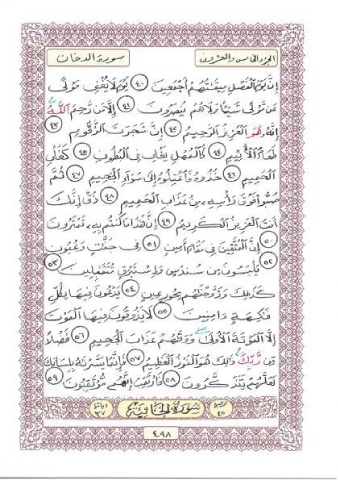 الجزء الخامس والعشرون
سورة الدخان
إِنَّ يَوْمَ الْفَصْلِ مِيقَاتُهُمْ أَجْمَعِينَ ٤٠ يَوْمَ لَا يُغْنِي مَوْلًى
عَن مَّوْلًى شَيْئًا وَلَا هُمْ يُنصَرُونَ ٤١ إِلَّا مَن رَّحِمَ اللَّهُ
إِنَّهُ هُوَ الْعَزِيزُ الرَّحِيمُ ٤٢ إِنَّ شَجَرَتَ الزَّقُّومِ ٤٣
طَعَامُ الْأَثِيمِ ٤٤ كَالْمُهْلِ يَغْلِي فِي الْبُطُونِ ٤٥ كَغَلْيِ
الْحَمِيمِ ٤٦ خُذُوهُ فَاعْتِلُوهُ إِلَى سَوَاءِ الْجَحِيمِ ٤٧ ثُمَّ
صُبُّوا فَوْقَ رَأْسِهِ مِنْ عَذَابِ الْحَمِيمِ ٤٨ ذُقْ إِنَّكَ
أَنتَ الْعَزِيزُ الْكَرِيمُ ٤٩ إِنَّ هَٰذَا مَا كُنتُم بِهِ تَمْتَرُونَ
٥٠ إِنَّ الْمُتَّقِينَ فِي مَقَامٍ أَمِينٍ ٥١ فِي جَنَّاتٍ وَعُيُونٍ
٥٢ يَلْبَسُونَ مِن سُندُسٍ وَإِسْتَبْرَقٍ مُّتَقَابِلِينَ ٥٣
كَذَٰلِكَ وَزَوَّجْنَاهُم بِحُورٍ عِينٍ ٥٤ يَدْعُونَ فِيهَا بِكُلِّ
فَاكِهَةٍ آمِنِينَ ٥٥ لَا يَذُوقُونَ فِيهَا الْمَوْتَ
إِلَّا الْمَوْتَةَ الْأُولَى وَوَقَاهُمْ عَذَابَ الْجَحِيمِ ٥٦ فَضْلًا
مِّن رَّبِّكَ ذَٰلِكَ هُوَ الْفَوْزُ الْعَظِيمُ ٥٧ فَإِنَّمَا يَسَّرْنَاهُ بِلِسَانِكَ
لَعَلَّهُمْ يَتَذَكَّرُونَ ٥٨ فَارْتَقِبْ إِنَّهُم مُّرْتَقِبُونَ ٥٩
سورة الجاثية
٤٩٨